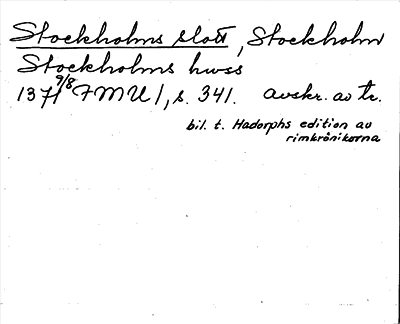 Stockholms slott, Stockholm
Stockholms hwss
1371 9/8 FMU 1, s. 341. avskr. av tr.
bil. t. Hadorphs edition av
rimkrönikorna